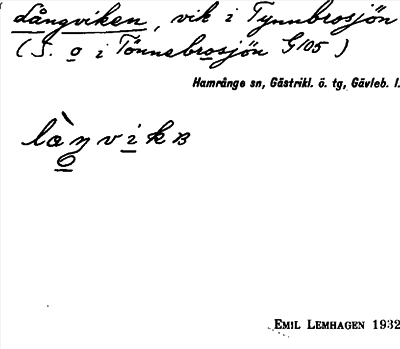 Långviken, vik i Tynnbrosjön
(S. o i Tönnebrosjön G105)
Hamrånge sn, Gästrikl. ö. tg, Gävleb. l.
EMIL LEMHAGEN 1932